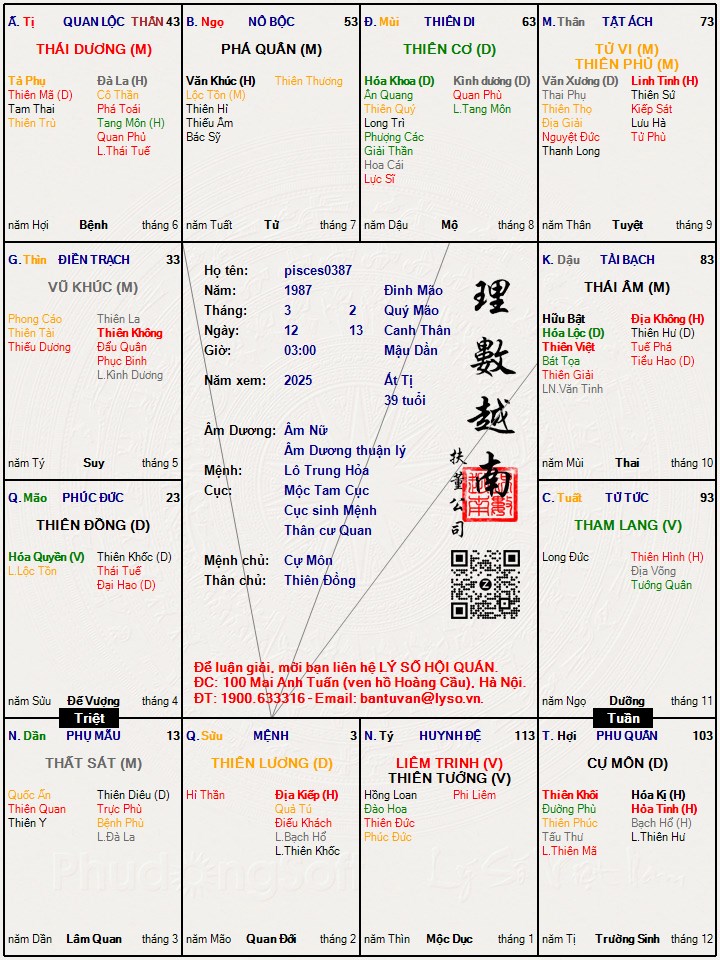 Ấ. Tị QUAN LỘC THÂN 43
THÁI DƯƠNG (M)
Tả Phụ
Thiên Mã (D)
Tam Thai
Thiên Trù
Đà La (H)
Cô Thần
Phá Toái
Tang Môn (H)
Quan Phủ
L.Thái Tuế
năm Hợi Bệnh tháng 6
B. Ngọ NÔ BỘC 53
PHÁ QUÂN (M)
Văn Khúc (H)
Lộc Tồn (M)
Thiên Hỉ
Thiếu Âm
Bác Sỹ
Thiên Thương
năm Tuất Tử tháng 7
Đ. Mùi THIÊN DI 63
THIÊN CƠ (D)
Hóa Khoa (D)
Ân Quang
Thiên Quý
Long Trì
Phượng Các
Giải Thần
Hoa Cái
Lực Sĩ
Kình dương (D)
Quan Phù
L.Tang Môn
năm Dậu Mộ tháng 8
M. Thân TẬT ÁCH 73
TỬ VI (M)
THIÊN PHỦ (M)
Văn Xương (D)
Thai Phụ
Thiên Thọ
Địa Giải
Nguyệt Đức
Thanh Long
Linh Tinh (H)
Thiên Sứ
Kiếp Sát
Lưu Hà
Tử Phù
năm Thân Tuyệt tháng 9
G. Thìn ĐIỀN TRẠCH 33
VŨ KHÚC (M)
Phong Cáo
Thiên Tài
Thiếu Dương
Thiên La
Thiên Không
Đẩu Quân
Phục Binh
L.Kình Dương
năm Tý Suy tháng 5
Họ tên: pisces0387
Năm: 1987 Đinh Mão
Tháng: 3 2 Quý Mão
Ngày: 12 13 Canh Thân
Giờ: 03:00 Mậu Dần
Năm xem: 2025 Ất Tị
39 tuổi
Âm Dương: Âm Nữ
Âm Dương thuận lý
Mệnh: Lô Trung Hỏa
Cục: Mộc Tam Cục
Cục sinh Mệnh
Thân cư Quan
Mệnh chủ: Cự Môn
Thân chủ: Thiên Đồng
理數越南
扶董公司
Để luận giải, mời bạn liên hệ LÝ SỐ HỘI QUÁN.
ĐC: 100 Mai Anh Tuấn (ven hồ Hoàng Cầu), Hà Nội.
ĐT: 1900.633316 - Email: bantuvan@lyso.vn.
K. Dậu TÀI BẠCH 83
THÁI ÂM (M)
Hữu Bật
Hóa Lộc (D)
Thiên Việt
Bát Tọa
Thiên Giải
LN.Văn Tinh
Địa Không (H)
Thiên Hư (D)
Tuế Phá
Tiểu Hao (D)
năm Mùi Thai tháng 10
Q. Mão PHÚC ĐỨC 23
THIÊN ĐỒNG (D)
Hóa Quyền (V)
L.Lộc Tồn
Thiên Khốc (D)
Thái Tuế
Đại Hao (D)
năm Sửu Đế Vượng tháng 4
Triệt
C. Tuất TỬ TỨC 93
THAM LANG (V)
Long Đức
Thiên Hình (H)
Địa Võng
Tướng Quân
năm Ngọ Dưỡng tháng 11
Tuần
N. Dần PHỤ MẪU 13
THẤT SÁT (M)
Quốc Ấn
Thiên Quan
Thiên Y
Thiên Diêu (D)
Trực Phù
Bệnh Phù
L.Đà La
năm Dần Lâm Quan tháng 3
Q. Sửu MỆNH 3
THIÊN LƯƠNG (D)
Hỉ Thần
Địa Kiếp (H)
Quả Tú
Điếu Khách
L.Bạch Hổ
L.Thiên Khốc
năm Mão Quan Đới tháng 2
N. Tý HUYNH ĐỆ 113
LIÊM TRINH (V)
THIÊN TƯỚNG (V)
Hồng Loan
Đào Hoa
Thiên Đức
Phúc Đức
Phi Liêm
năm Thìn Mộc Dục tháng 1
T. Hợi PHU QUÂN 103
CỰ MÔN (D)
Thiên Khôi
Đường Phù
Thiên Phúc
Tấu Thư
L.Thiên Mã
Hóa Kị (H)
Hỏa Tinh (H)
Bạch Hổ (H)
L.Thiên Hư
năm Tị Trường Sinh tháng 12